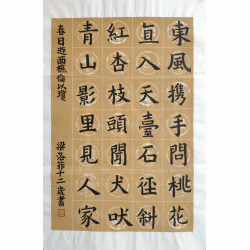 東風携手問桃花
直入天臺石徑斜
紅杏枝頭聞犬吠
青山影里見人家
春日遊西樵倫以
梁洛菲十二歲書